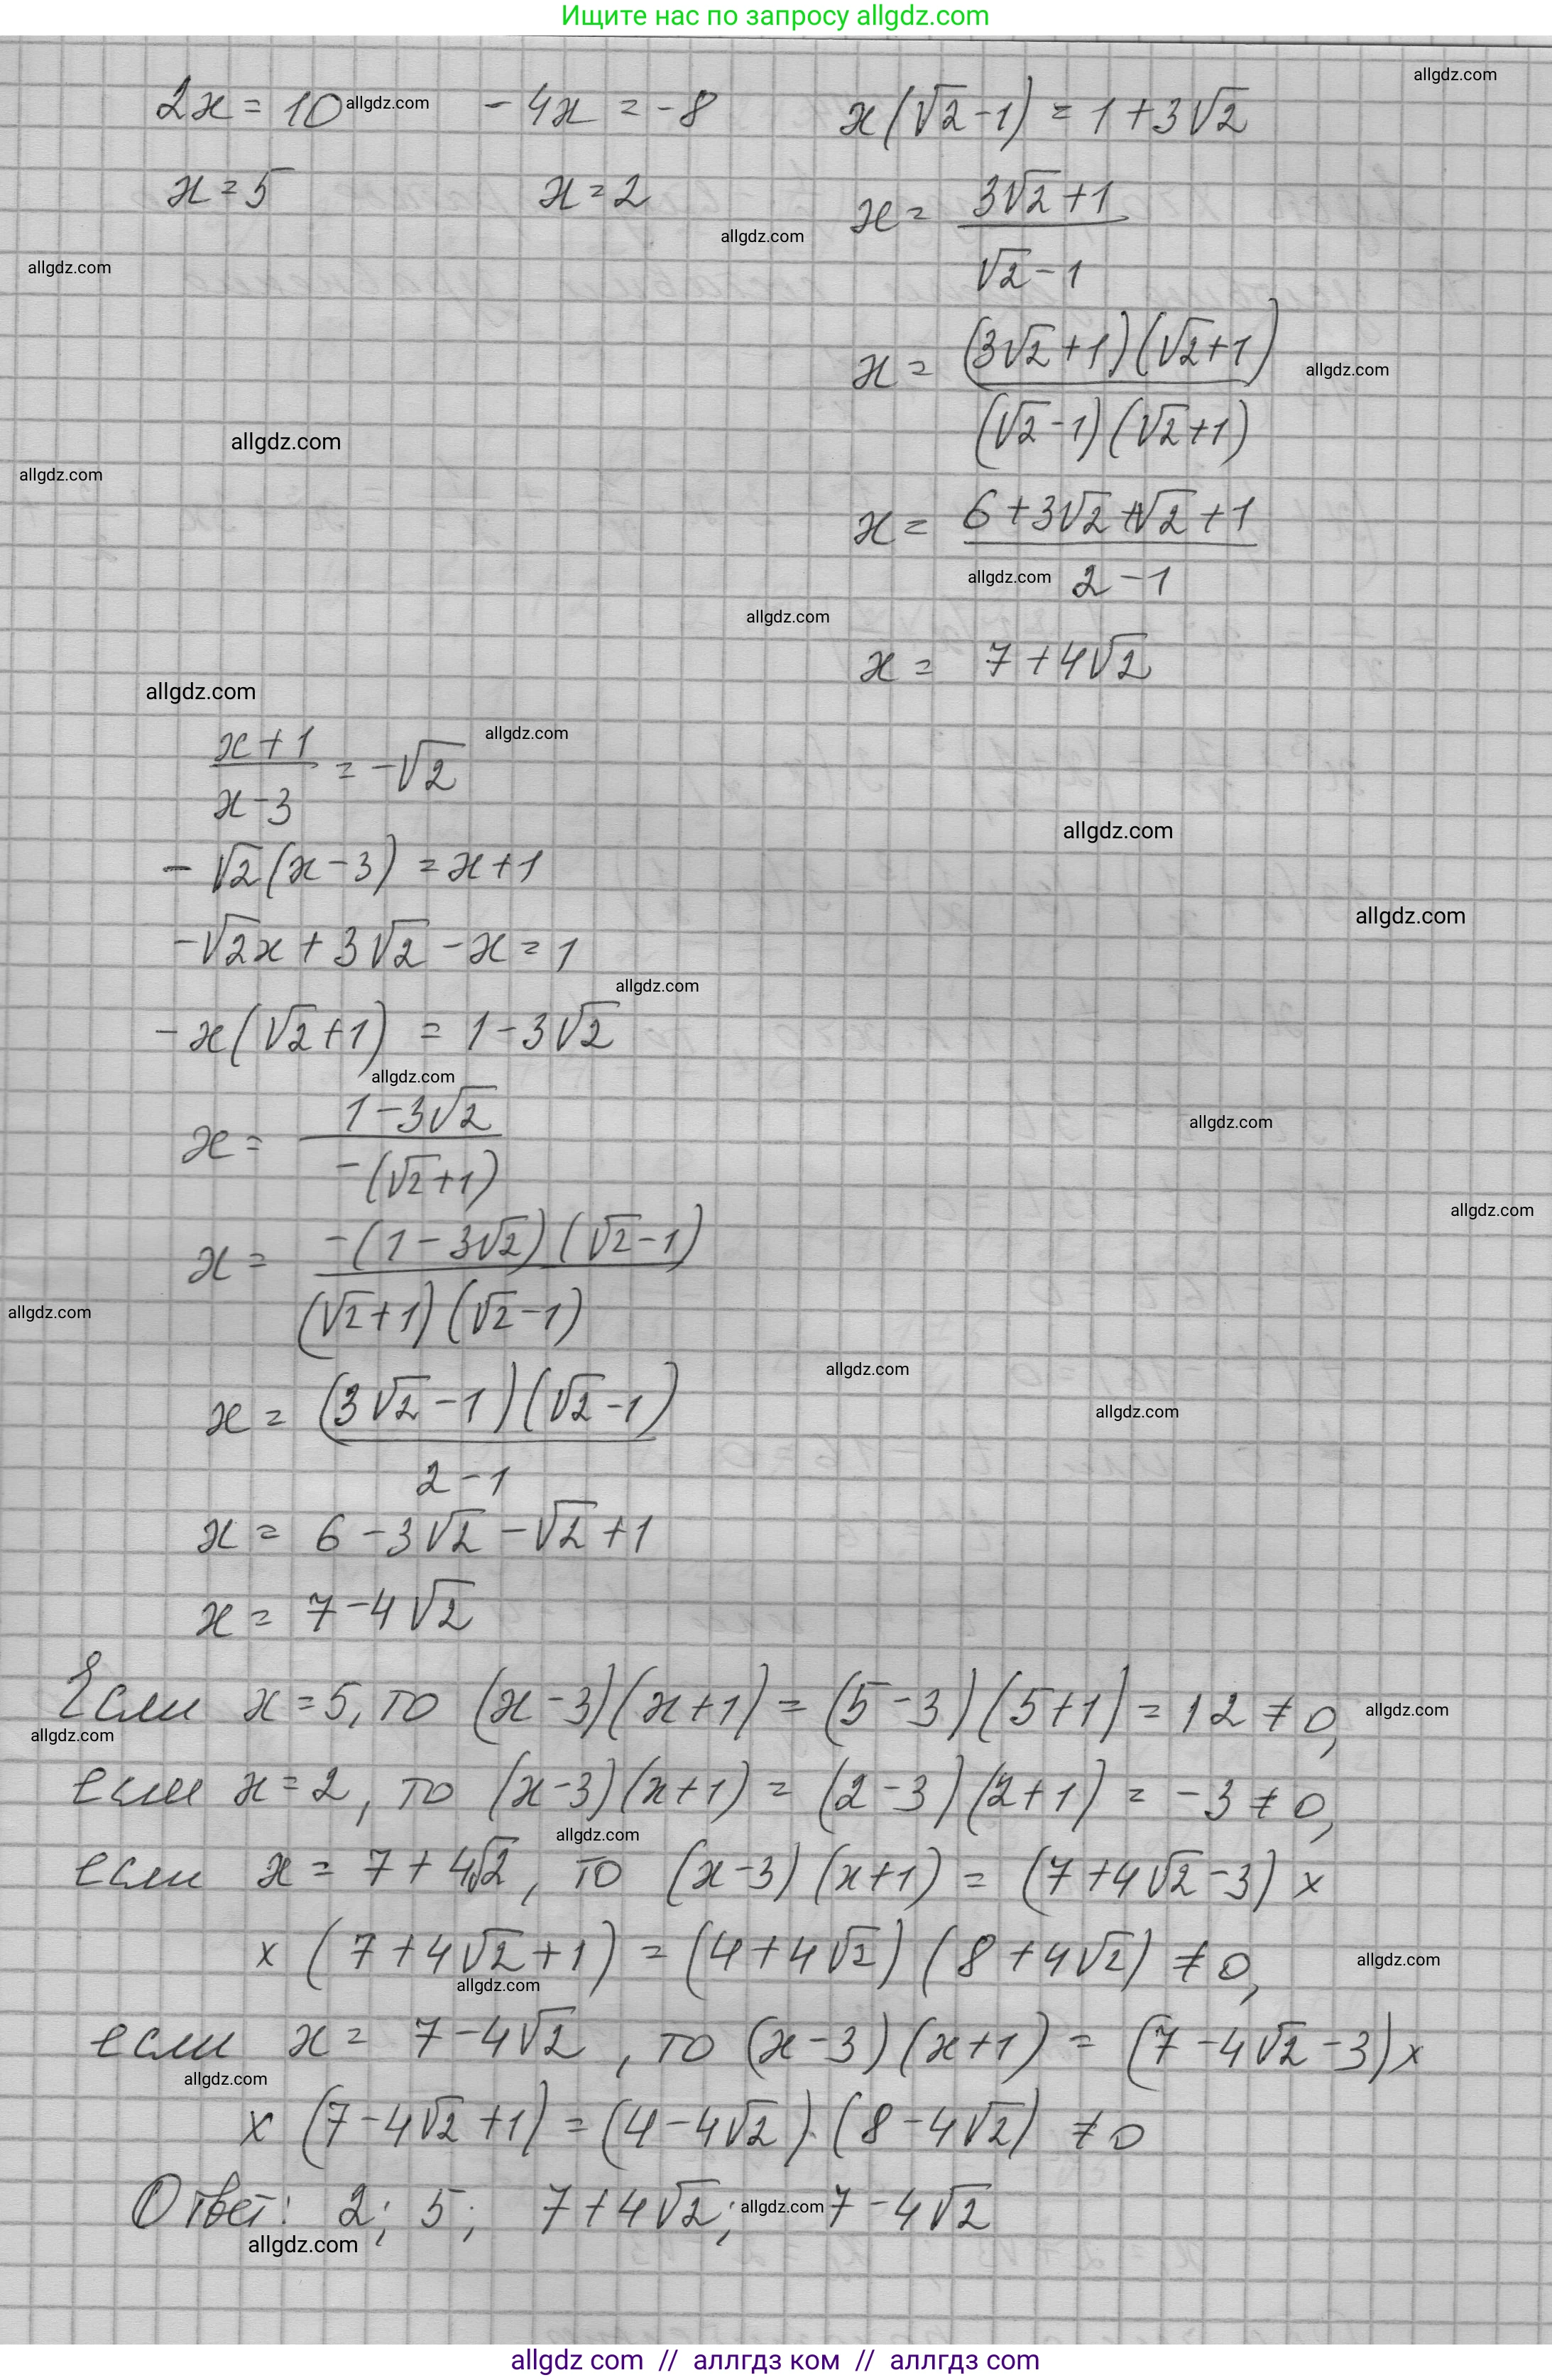 Ищите нас по запросу allgdz.com
allgdz.com
2x = 10 allgdz.com -4x = -8 x(√2-1) = 1+3√2
x = 5 x = 2 x = (3√2+1)/(√2-1)
allgdz.com
allgdz.com
x = ((3√2+1)(√2+1))/((√2-1)(√2+1))
allgdz.com
allgdz.com
allgdz.com
x = (6+3√2+√2+1)/(2-1)
allgdz.com
allgdz.com
x = 7+4√2
allgdz.com
allgdz.com
(x+1)/(x-3) = -√2
allgdz.com
-√2(x-3) = x+1
allgdz.com
-√2x + 3√2 - x = 1
allgdz.com
-x(√2+1) = 1-3√2
allgdz.com
x = (1-3√2)/(-(√2+1))
allgdz.com
allgdz.com
x = (-(1-3√2)(√2-1))/((√2+1)(√2-1))
allgdz.com
allgdz.com
x = ((3√2-1)(√2-1))/(2-1)
allgdz.com
x = 6-3√2-√2+1
x = 7-4√2
Если x=5, то (x-3)(x+1) = (5-3)(5+1) = 12 ≠ 0,
allgdz.com
allgdz.com
если x=2, то (x-3)(x+1) = (2-3)(2+1) = -3 ≠ 0,
allgdz.com
если x = 7+4√2, то (x-3)(x+1) = (7+4√2-3) ×
× (7+4√2+1) = (4+4√2)(8+4√2) ≠ 0,
allgdz.com
allgdz.com
если x = 7-4√2, то (x-3)(x+1) = (7-4√2-3) ×
allgdz.com
× (7-4√2+1) = (4-4√2)·(8-4√2) ≠ 0
Ответ: 2; 5; 7+4√2; allgdz.com 7-4√2
allgdz.com
allgdz com // аллгдз ком // аллгдз com